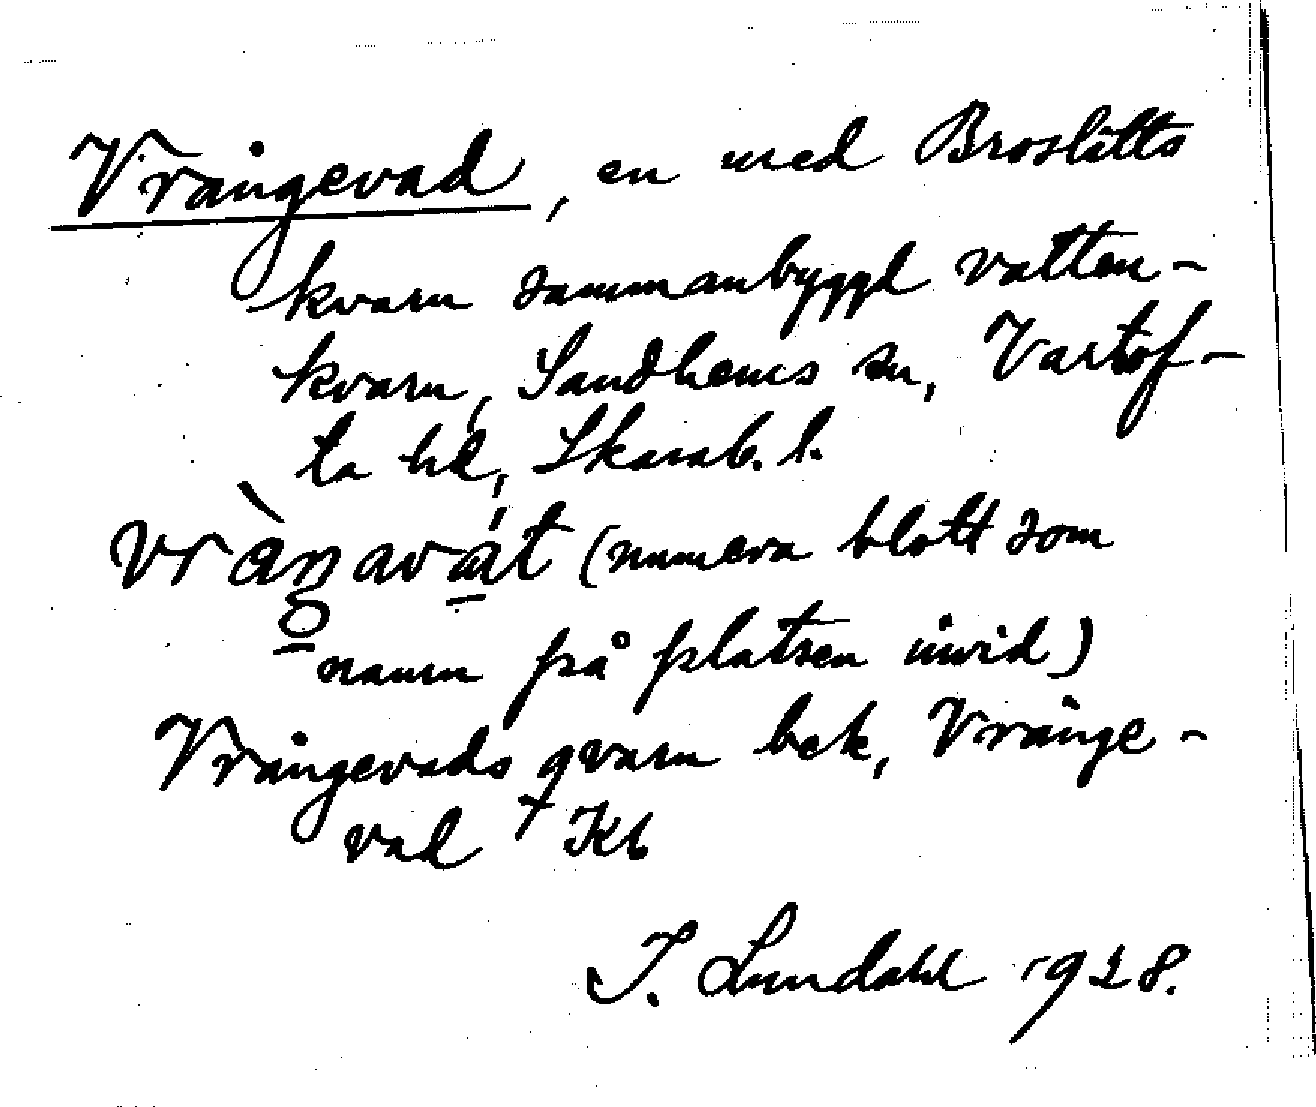 Vrångevad, en med Broslätts
kvarn sammanbyggd vatten-
kvarn, Sandhems sn, Vartof-
ta hd, Skarab. l.
(numera blott som
namn på platsen invid)
Vrångevads qvarn bek, Vrånge-
vad + Kb
I. Lundahl 1928.